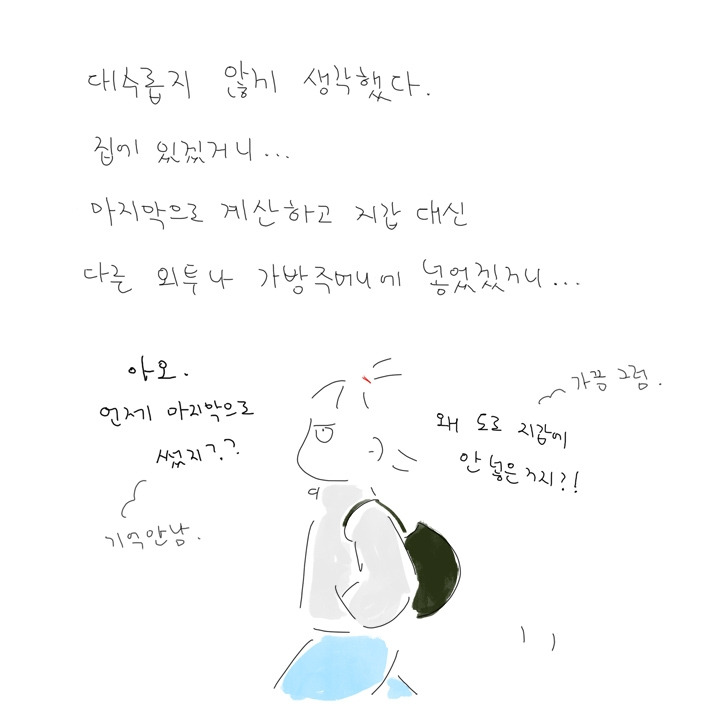 대수롭지 않게 생각했다.
집에 있겠거니...
마지막으로 계산하고 지갑 대신
다른 외투나 가방주머니에 넣었겠거니...
아오.
언제 마지막으로
썼지?.?
기억안남.
가끔 그럼.
왜 도로 지갑에
안 넣은거지?!